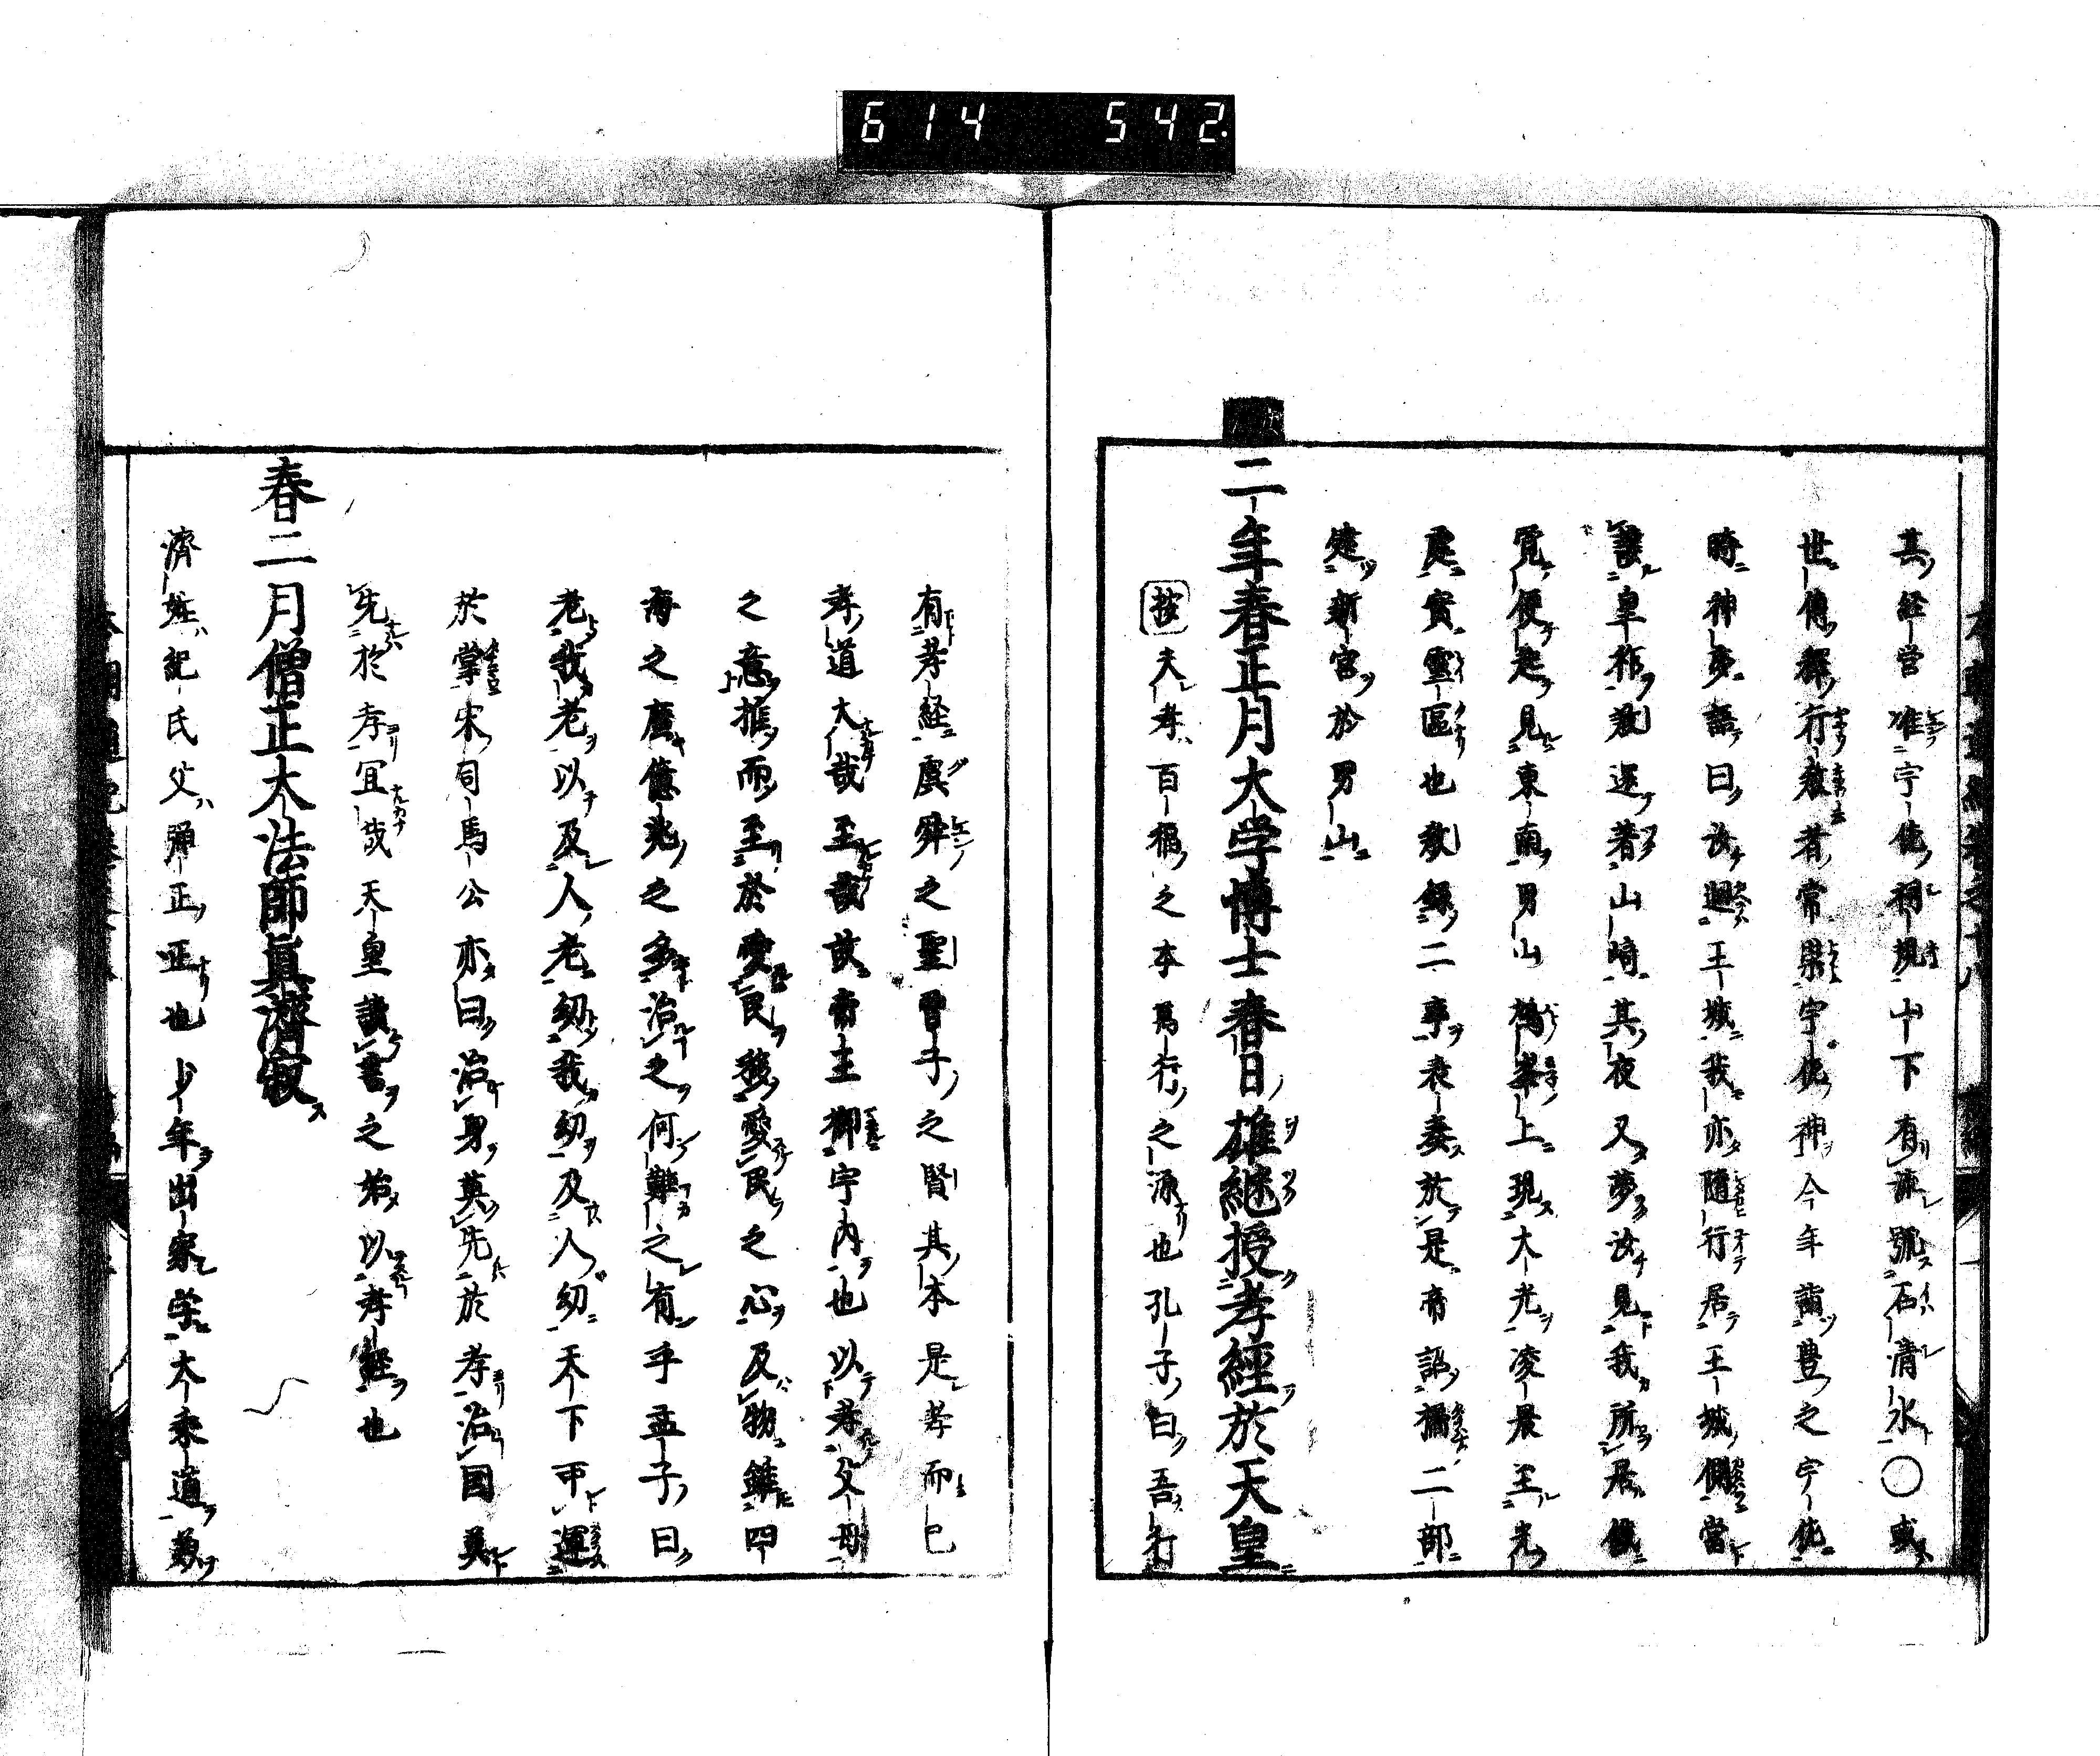 614 542.
其経営准宇佐祠現山下有流號石清水〇或
世傳釋行教者常爲宇佐神今年詣豊之宇佐
時神夢語曰汝迴王城我亦随行居王城側當
護皇祚教還著山崎其夜又夢汝見我所居俄
覚便起見東南男山鳩峯上現大光凌晨至光
處實靈區也教録二事表奏於是帝詔橘二部
建新宮於男山
二年春正月大学博士春日雄継授孝經於天皇
按夫孝百福之本萬行之源也孔子曰吾行
有孝経虞舜之聖曽子之賢其本是孝而已
孝道大哉至哉故帝主御宇内也以孝父母
之意推而至於愛民移愛民之心及物雖四
海之廣億兆之多治之何難之有乎孟子曰
老我老以及人老幼我幼及人幼天下可運
於掌宋司馬公亦曰治身莫先於孝治国莫
先於孝宜哉天皇讀書之始以孝経也
春二月僧正大法師眞濟寂
濟姓紀氏父弾正正也少年出家学大乗道兼